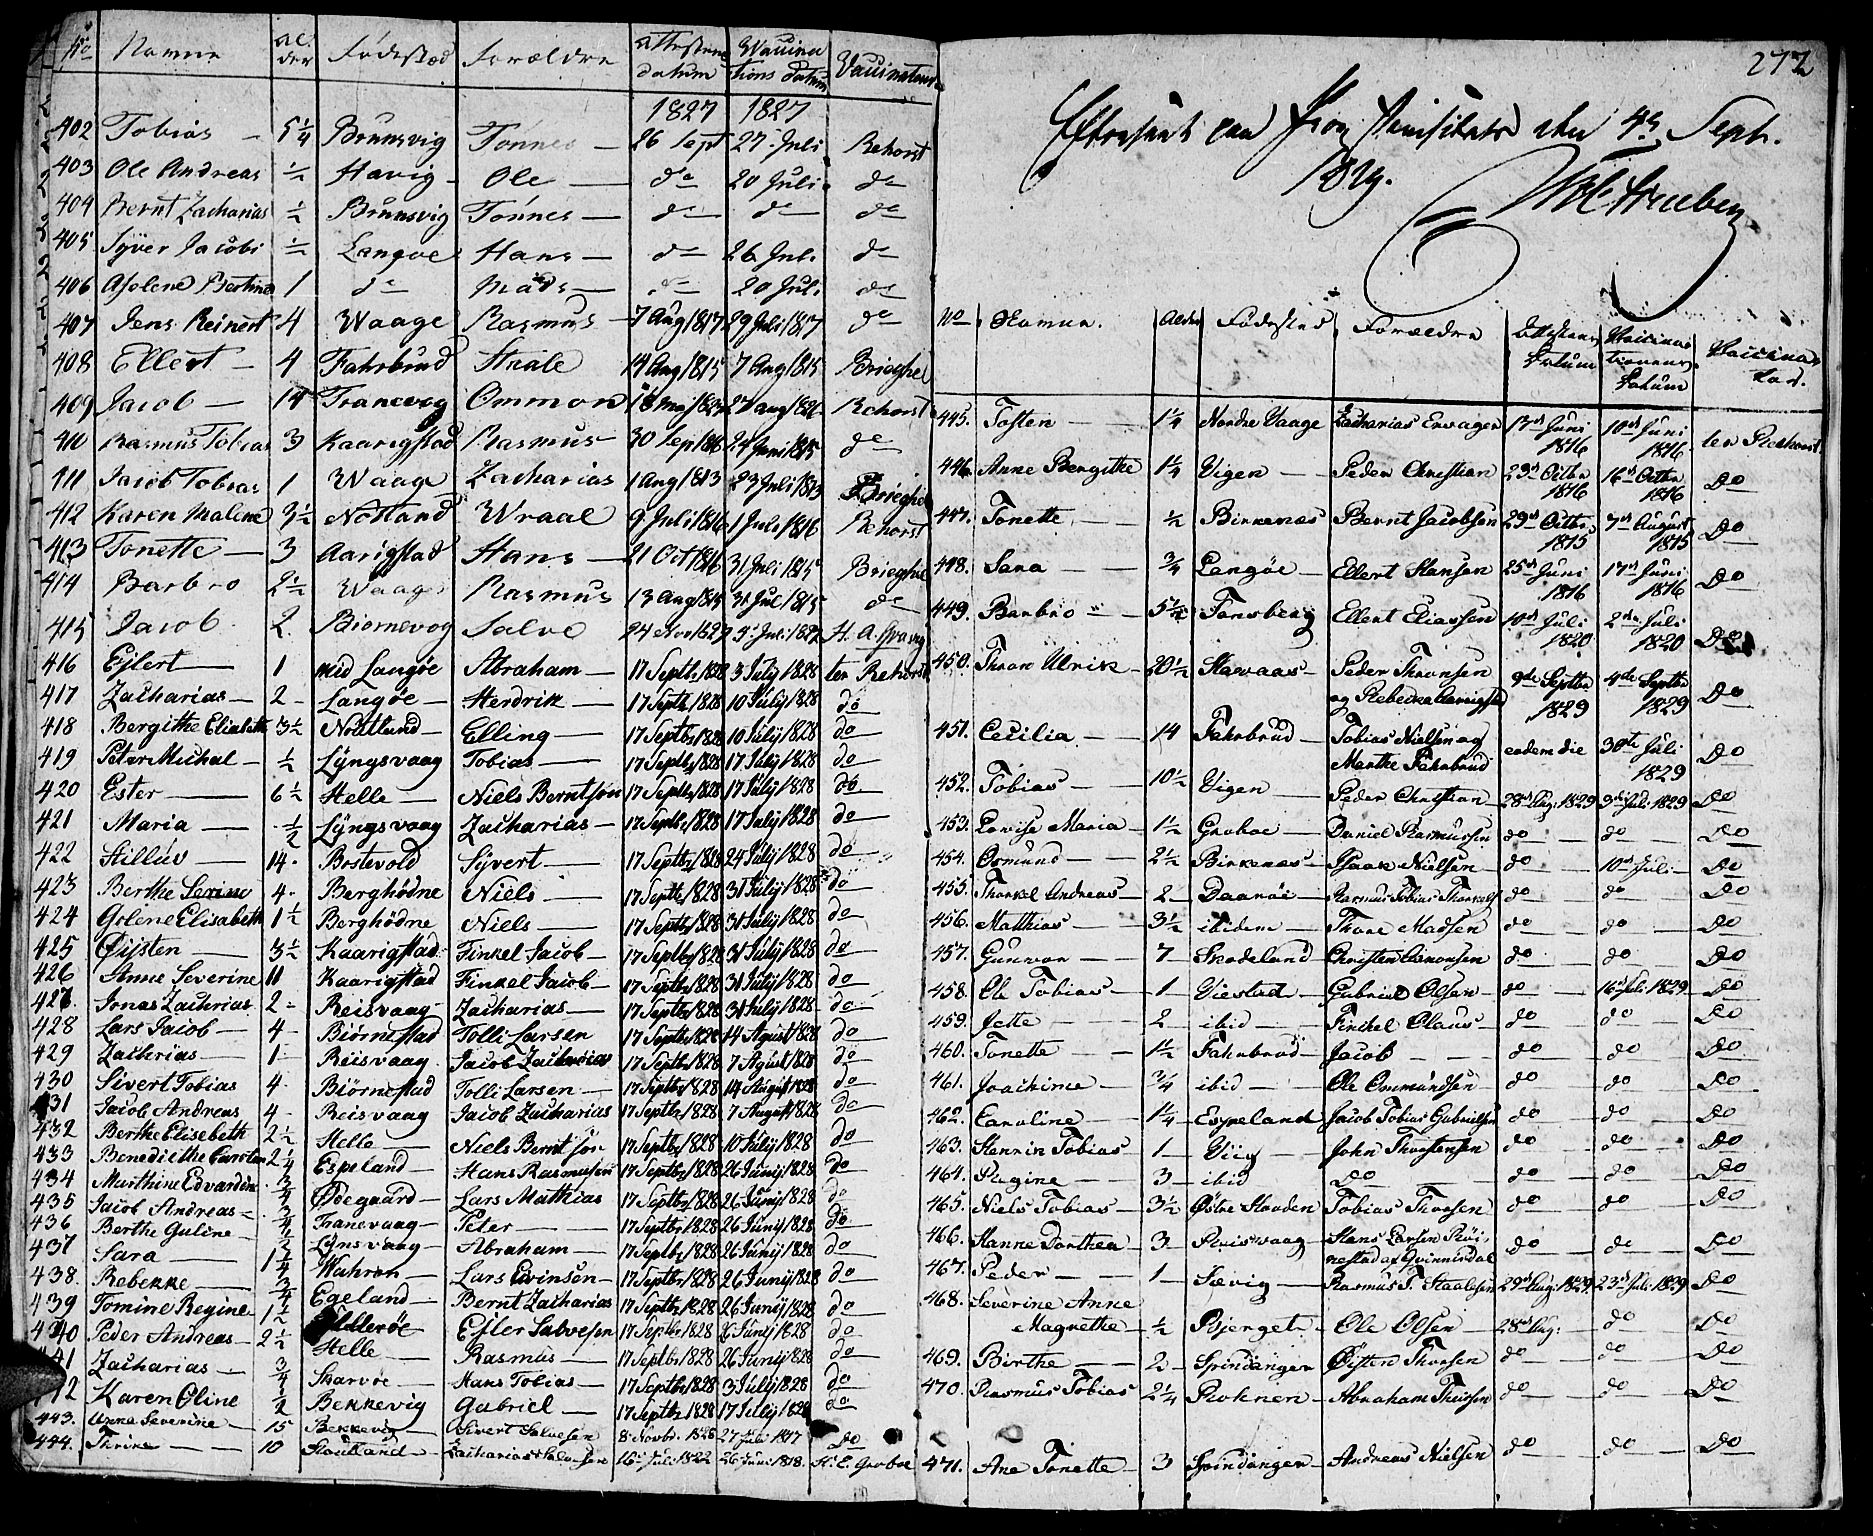 No Namme al- der Fødestæd Forældre attestens datum Waccina tions datum Vaccinateur
1827 1827
402 Tobias 5 1/4 Brunsvig Tønnes 26 Sept 27 Juli Rehorst
403 Ole Andreas 1/2 Havig Ole do 20 Juli do
404 Bernt Zacharias 1/2 Brunsvig Tønnes do do do
405 Syver Jacobi 1/2 Langøe Hans do 26 Juli do
406 Aselene Bertine 1 do Mads do 20 Juli do
407 Jens Reinert 4 Waage Rasmus 7 Aug 1817 29 Juli 1817 do
408 Ellert 4 Fahrbrud Staale 14 Aug 1815 7 Aug 1815 Brieghel
409 Jacob 14 Tranevog Ommon 18 Maj 1827 27 aug 1826 Rehorst
410 Rasmus Tobias 3 Kaarigstad Rasmus 30 Sep 1816 24 Juni 1815 do
411 Jacob Tobias 1 Waage Zacharias 1 Aug 1813 23 Juli 1813 Brieghel
412 Karen Malene 3 1/2 Nøtland Wraal 9 Juli 1816 1 Juli 1816 Rehorst
413 Tonette 3 Aarigstad Hans 21 Oct 1816 31 Juli 1815 Brieghel
414 Barbro 2 1/2 Waage Rasmus 13 Aug 1815 31 Jul 1815 do
415 Jacob 2 Biornevog Salve 24 Nov 1827 5 Juli 1827 H. A. Gravog
416 Ejlert 1 Mid Langøe Abraham 17 Septbr 1828 3 July 1828 ter Rehorst
417 Zacharias 2 Langøe Hendrik 17 Septbr 1828 10 July 1828 do
418 Bergithe Elisabeth 3 1/2 Nøttlund Elling 17 Septbr 1828 10 July 1828 do
419 Peter Michal 1/2 Lyngsvaag Tobias 17 Septbr 1828 17 July 1828 do
420 Ester 6 1/2 Helle Niels Berntsøn 17 Septbr 1828 17 July 1828 do
421 Maria 1/2 Lyngsvaag Zacharias 17 Septbr 1828 17 July 1828 do
422 Silluv 14 Bostevold Syvert 17 Septbr 1828 24 July 1828 do
423 Berthe Serine 4 Berghødne Niels 17 Septbr 1828 31 July 1828 do
424 Golene Elisabeth 1 1/2 Berghødne Niels 17 Septbr 1828 31 July 1828 do
425 Øysten 3 1/2 Kaarigstad Finkel Jacob 17 Septbr 1828 31 July 1828 do
426 Anne Severine 11 Kaarigstad Finkel Jacob 17 Septbr 1828 31 July 1828 do
427. Jonas Zachrias 2 Reisvaag Zacharias 17 Septbr 1828 31 July 1828 do
428 Lars Jacob 4 Biørnestad Tolli Larsen 17 Septbr 1828 14 Agust 1828 do
429 Zachrias 1 Reisvaag Jacob Zacharias 17 Septbr 1828 7 Agust 1828 do
430 Sivert Tobias 4 Biørnestad Tolli Larsen 17 Septbr 1828 14 August 1828 do
431 Jacob Andreas 4 Reisvaag Jacob Zacharias 17 Septbr 1828 7 August 1828 do
432 Berthe Elisebeth 2 1/2 Helle Niels Berntsøn 17 Septbr 1828 10 July 1828 do
433 Benedicthe 2 1/4 Espeland Hans Rasmusen 17 Septbr 1828 26 Juny 1828 do
434 Marthine Edvardine 3/4 Ødegaard Lars Matthias 17 Septbr 1828 26 Juny 1828 do
435 Jacob Andreas 3/4 Tranevaag Peter 17 Septbr 1828 26 Juny 1828 do
436 Berthe Guline 1/2 Lyngsvaag Abraham 17 Septbr 1828 26 Juny 1828 do
437 Sara 1 1/4 Wahren Lars Evinsøn 17 Septbr 1828 26 Juny 1828 do
438. Rebekke 3/4 Egeland Bernt Zacharias 17 Septbr 1828 26 Juny 1828 do
439 Tomine Regine 1 1/2 Hillerøe Efler Salvesen 17 Septbr 1828 26 Juny 1828 do
440 Peder Andreas 2 1/2 Helle Rasmus 17 Septbr 1828 26 Juny 1828 do
441 Zacharias 3/4 Skarvøe Hans Tobias 17 Septbr 1828 3 July 1828 do
442 Karen Oline 1/2 Bekkevig Gabriel 17 Septbr 1828 17 July 1828 do
443. Anna Severine 15 Bekkevig Sivert Salvesen 8 Novbr. 1828 27 Juli 1817 Do
444. Thrine 10 Zacharias Salvesen 16 Juli 1822 26 Juni 1818. H. E. Groboe
272
Efterseet paa Provstevisitats den 4de Septr.
1829.
No Namme. Alder Fødested Forældre Attestens Datum Vaccinationens Datum Vaccinatør.
445. Tosten 1 1/4 Nordre Vaage Zacharias Ervagen 17de Juni 1816 10de Juni 1816 ter Reehorst
446. Anne Bergithe 1 1/4 Vigen Peder Christian 23de Octbr 1816 16de Octbr 1816 Do
447. Tonette 1/2 Birkenæs Bernt Jacobsen 29de Octbr 1815 7de August 1815 Do
448. Sara 3/4 Langøe Ellert Hansen 25de Juni 1816 17de Juni 1816 Do
449. Barbro 5 1/2 Tonsberg Ellert Eliassen 10de Juli 1820 2den Juli 1820 Do
450. Thron Ulrik 20 1/2 Stavaas Peder Thronsen og Rebecka 9de Septbr 1829 4de Septbr 1829 Do
451. Cecilia 14 Fahrbrud Tobias Nielsen og Marthe Fahrbrud eodem die 30te Juli 1829 Do
452. Tobias 10 1/2 Vigen Peder Christian 28de Aug: 1829 9de Juli 1829 Do
453. Lovise Maria 1 1/2 Groboe Daniel Rasmussen do do Do
454. Osmund 2 1/2 Birkenæs Isaak Nielsen do 10de Juli Do
455. Thorkel Andreas 2 Daarøe Rasmus Tobias Thorkels do do Do
456. Matthias 3 1/2 ibidem Thore Madsen do do Do
457. Gunvor 7 Skodeland Christen Aanonsen do do Do
458. Ole Tobias 1 Viestad Gabriel Olsen do 16de Juli 1829 Do
459. Jette 2 ibid Finkel Olaus do do Do
460. Tonette 1 1/2 Fahrbrud Jacob do do Do
461. Joachime 3/4 ibid Ole Ommundsen do do Do
462. Caroline 1 1/4 Espeland Jacob Tobias Gabrielsen do do Do
463. Henrik Tobias 1 Viig John Thorstensen do do Do
464. Ragine 3 ibid Do do do Do
465. Niels Tobias 3 1/2 Østre Skouden Tobias Thorsen do do Do
466. Hanne Dorthea 3 Reisvaag Hans Larsen Røi- nestad af Qvinnisdal do do Do
467. Peder 1 Sævig Rasmus T. Staalesen 29de Aug: 1829 23de Juli 1829 Do
468. Severine Anne Magnette 1/2 Bjerget Ole Olsen 28de Aug: do Do
469. Birthe 2 Spindangen Øisten Thorsen do do Do
470. Rasmus Tobias 2 1/4 Roknen Abraham Thorssen do do Do
471. Ane Tonette 3 Spindangen Andreas Nielsen do do Do